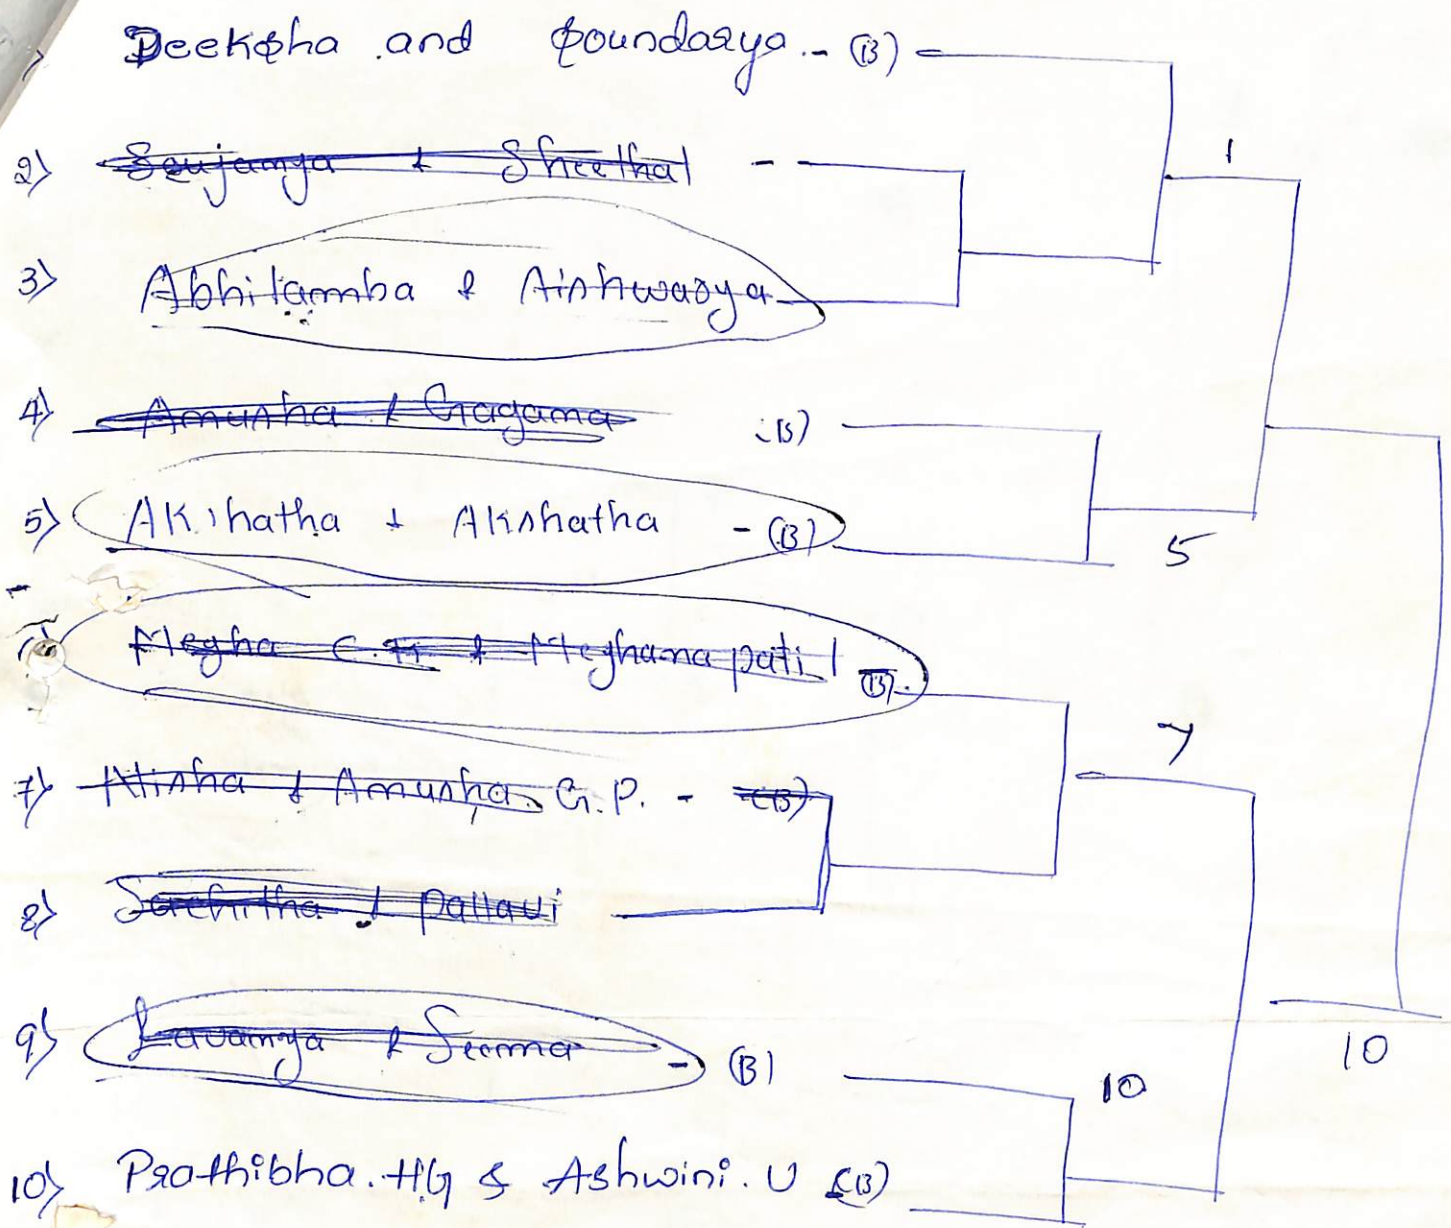 Deeksha and Soundarya - (B)
1
2) Soujanya & Sheethal -
3) Abhilamba & Aishwarya
4) Anusha & Gagana - (B)
5) Akshatha & Akshatha - (B)
5
Megha C.M & Meghana patil (B)
7
7) Nisha & Anusha. G.P. - (B)
8) Sachitha & Pallavi
9) Lavanya & Seema - (B)
10
10
10) Prathibha. HG & Ashwini. U (B)